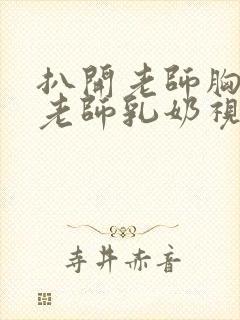 扒開老師胸
老師乳奶視
寺井赤音